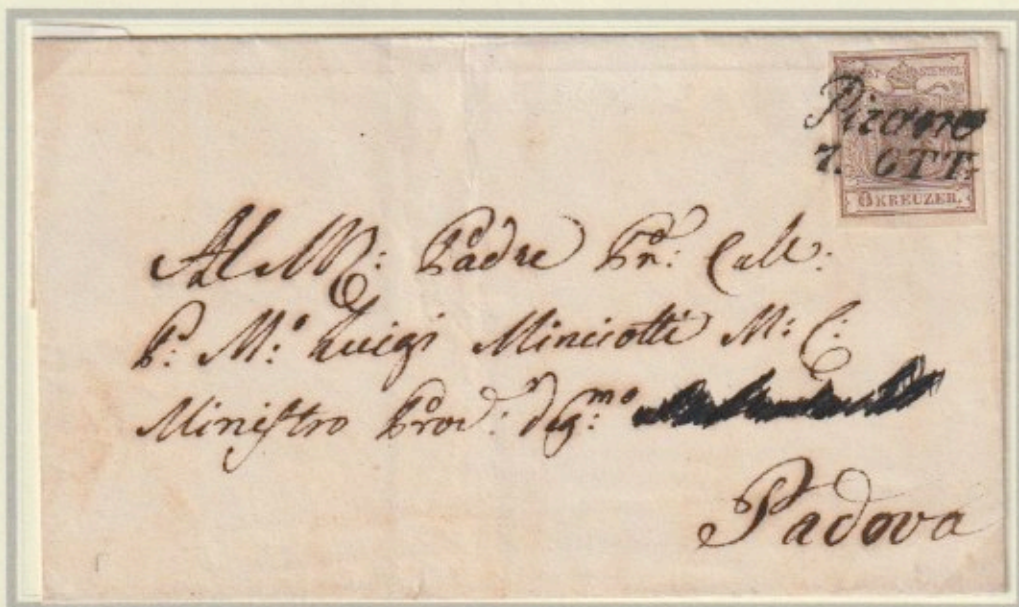 Pirano
7. OTT.
6 KREUZER.
Al M. R.: Padre Pn.: Coll:
P: M:o Luigi Minciotti M: C:
Ministro Prov: deg:mo
Padova